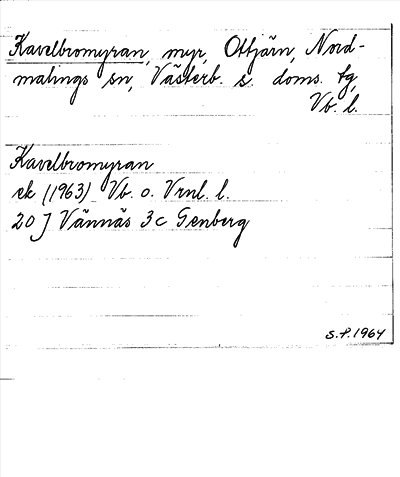 Kavelbromyran, myr, Ottjärn, Nord-
malings sn, Västerb. s. doms. tg,
Vb. l.
Kavelbromyran
ek (1963) Vb. o. Vrnl. l.
20 J Vännäs 3c Genberg
S.P. 1964